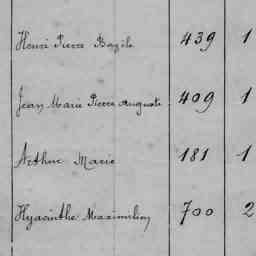 Henri Pierre Bazile 439 1
Jean Marie Pierre Auguste 409 1
Arthur Marie 181 1
Hyacinthe Maximilien 700 2